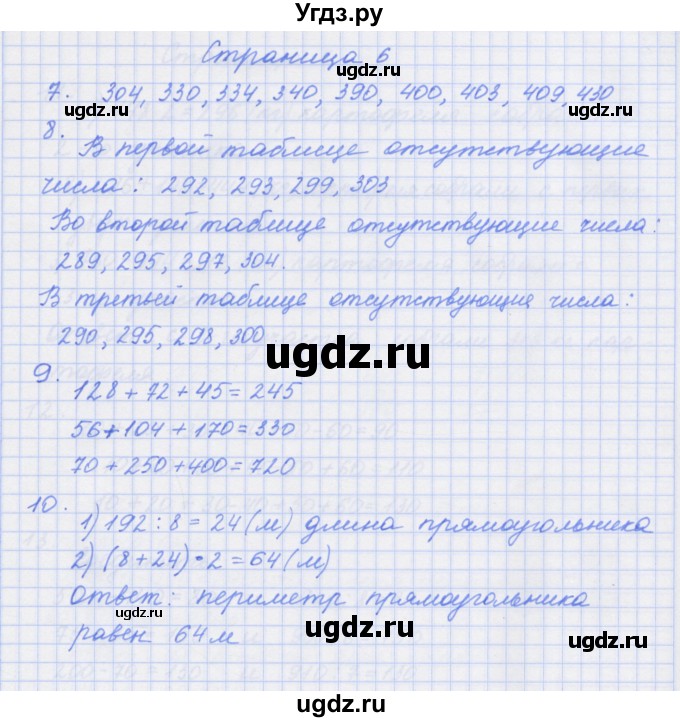 Угдз.ру
Страница 6
7. 304, 330, 334, 340, 390, 400, 403, 409, 430
8.
В первой таблице отсутствующие
числа: 292, 293, 299, 303
Во второй таблице отсутствующие числа:
289, 295, 297, 304.
В третьей таблице отсутствующие числа:
290, 295, 298, 300
9.
128 + 72 + 45 = 245
56 + 104 + 170 = 330
70 + 250 + 400 = 720
10.
1) 192 : 8 = 24 (м) длина прямоугольника
2) (8 + 24) • 2 = 64 (м)
Ответ: периметр прямоугольника
равен 64 м
ugdz.ru
ugdz.ru
ugdz.ru
ugdz.ru
ugdz.ru
ugdz.ru
ugdz.ru
ugdz.ru
ugdz.ru
ugdz.ru
ugdz.ru
ugdz.ru
ugdz.ru